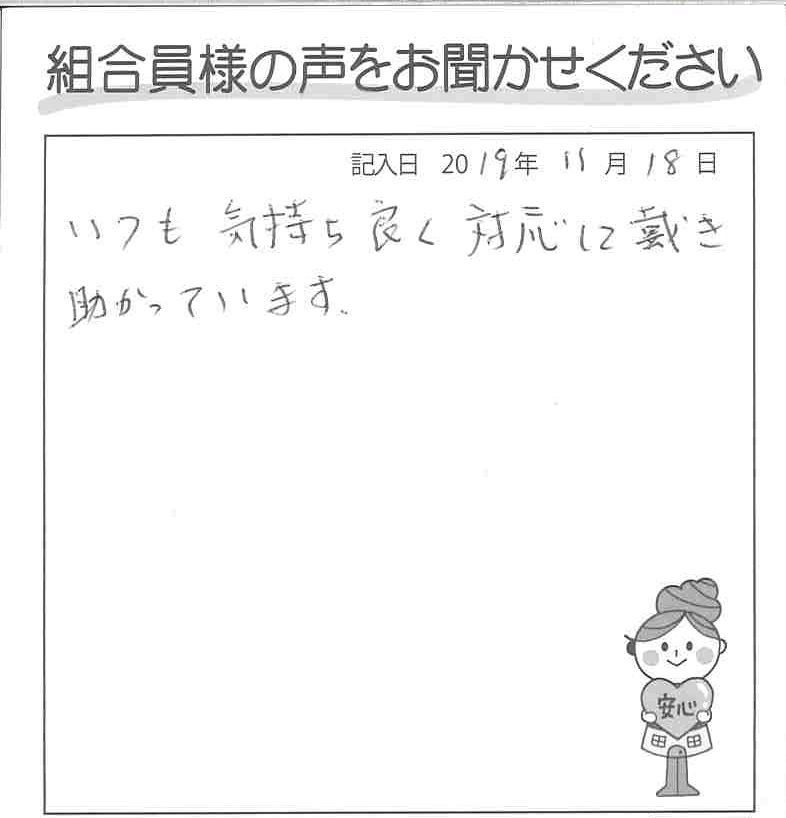 組合員様の声をお聞かせください
記入日 2019年 11月 18日
いつも 気持ち良く 対応して戴き
助かっています.
安心